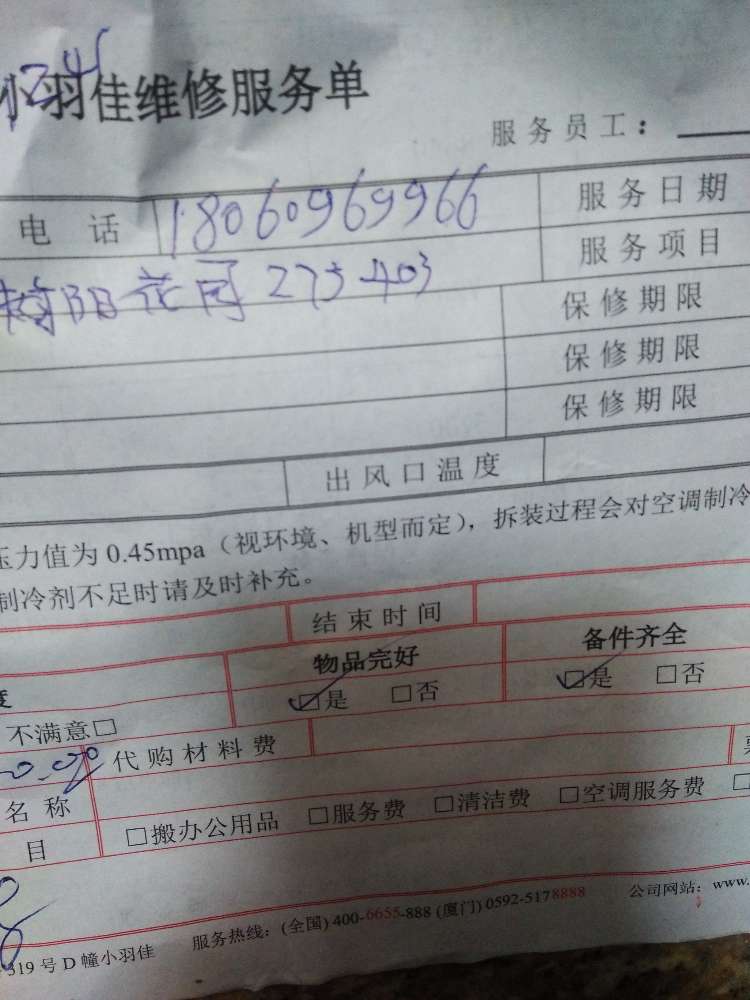 小羽佳维修服务单
服务员工：
电 话 18060969966 服务日期
阳花园 275-403 服务项目
保修期限
保修期限
保修期限
出风口温度
压力值为 0.45mpa（视环境、机型而定），拆装过程会对空调制冷
制冷剂不足时请及时补充。
结束时间
度 物品完好 备件齐全
不满意□ ☑是 □否 ☑是 □否
代购材料费
名 称
目 □搬办公用品 □服务费 □清洁费 □空调服务费 □
服务热线：(全国) 400-6655-888 (厦门) 0592-5178888 公司网站：www.
319 号 D 幢小羽佳